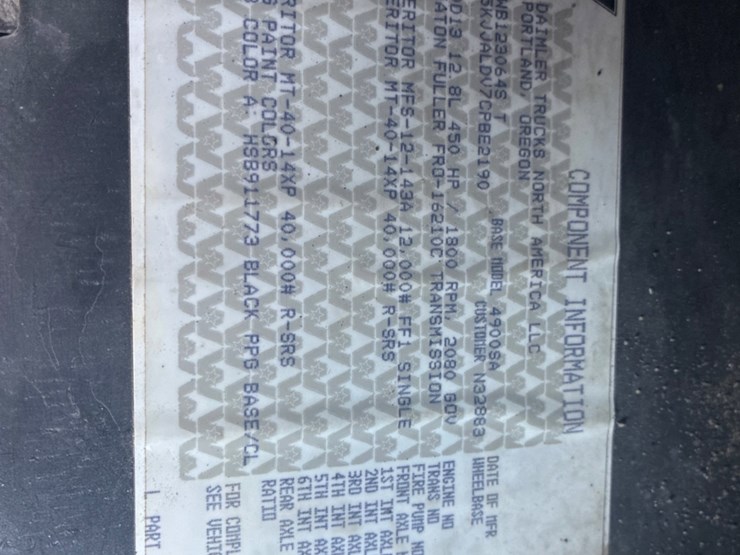 COMPONENT INFORMATION
DAIMLER TRUCKS NORTH AMERICA LLC
PORTLAND, OREGON
WB123064S T BASE MODEL 4900SA DATE OF MFR
5KJJALDV7CPBE2190 CUSTOMER N32883 WHEELBASE
DD13 12.8L 450 HP / 1800 RPM, 2080 GOV ENGINE NO
ATON FULLER FRO-16210C TRANSMISSION TRANS NO
FIRE PUMP NO
ERITOR MFS-12-143A 12,000# FF1 SINGLE FRONT AXLE
ERITOR MT-40-14XP 40,000# R-SRS 1ST INT AXL
2ND INT AXL
3RD INT AXL
4TH INT AX
5TH INT AX
6TH INT A
RITOR MT-40-14XP 40,000# R-SRS REAR AXLE
S PAINT COLORS RATIO
COLOR A: HSB911773 BLACK PPG BASE/CL
FOR COMPL
SEE VEHIC
L PART